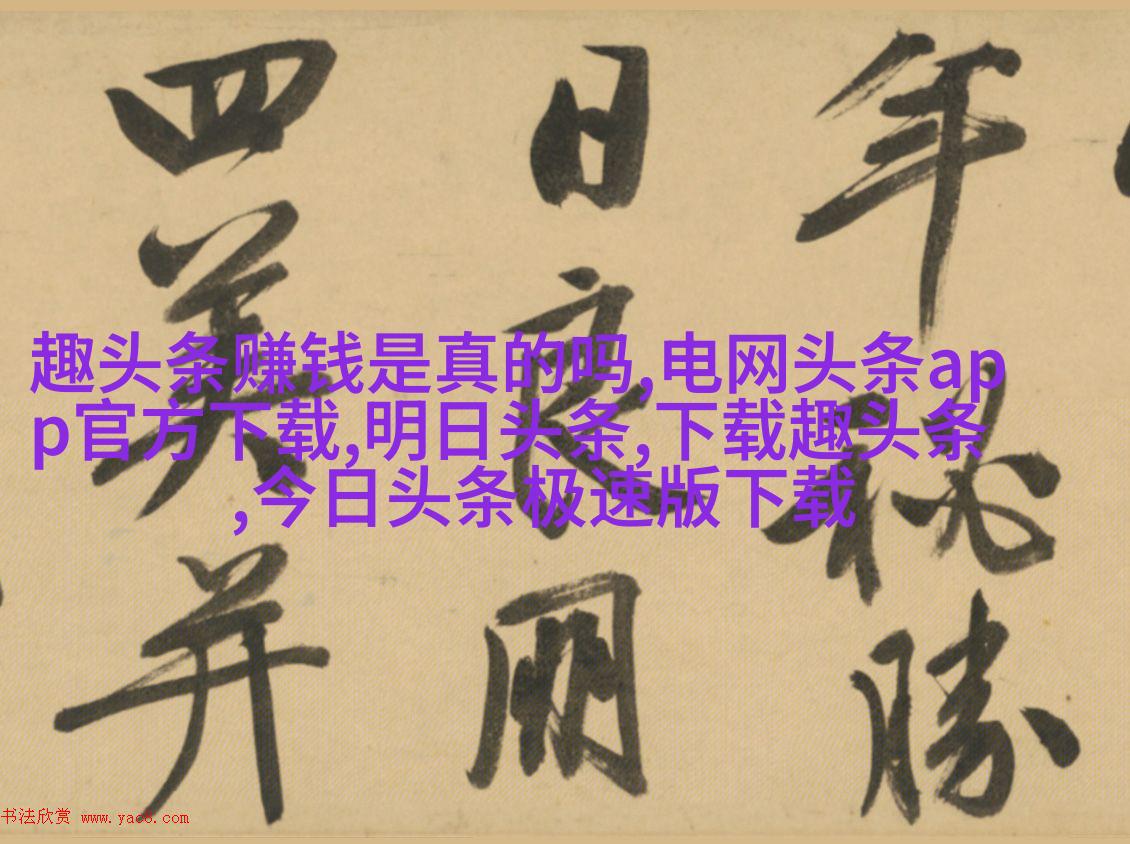 年秘勝
日良朋
四美并
趣头条赚钱是真的吗,电网头条ap
p官方下载,明日头条,下载趣头条
,今日头条极速版下载
书法欣赏 www.yac8.com